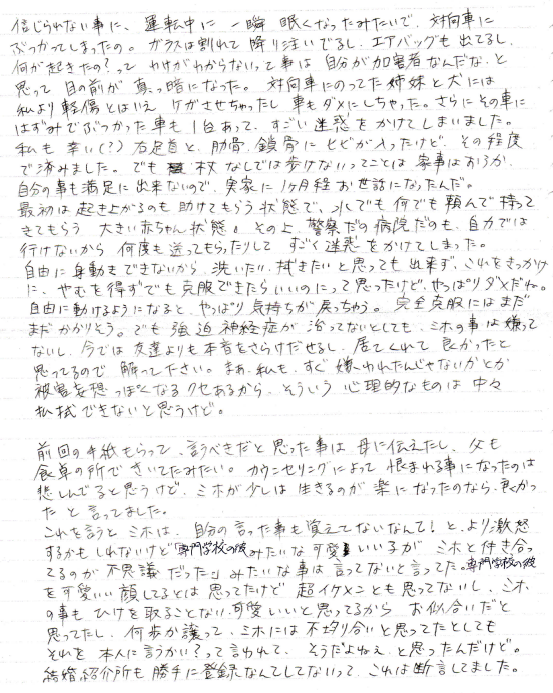 信じられない事に、運転中に一瞬眠くなったみたいで、対向車に
ぶつかってしまったの。ガラスは割れて降り注いでるし、エアバッグも出てるし、
何が起きたの?ってわけがわからないって事は自分が加害者なんだな、と
思って目の前が真っ暗になった。対向車にのってた姉妹と犬には
私より軽傷とはいえケガさせちゃったし車もダメにしちゃった。さらにその車に
はずみでぶつかった車も1台あって、すごい迷惑をかけてしまいました。
私も幸い(?)右足首と、肋骨、鎖骨にヒビが入ったけど、その程度
で済みました。でも杖なしでは歩けないってことは家事はおろか、
自分の事も満足に出来ないので、実家に1ヶ月程お世話になったんだ。
最初は起き上がるのも助けてもらう状態で、水でも何でも頼んで持って
きてもらう大きい赤ちゃん状態。その上、警察だの病院だのも、自力では
行けないから何度も送ってもらったりしてすごく迷惑をかけてしまった。
自由に身動きできないから、洗いたい、拭きたいと思っても出来ず、これをきっかけ
に、やむを得ずでも克服できたらいいのにって思ったけど、やっぱりダメだね。
自由に動けるようになると、やっぱり気持ちが戻っちゃう。完全克服にはまだ
まだかかりそう。でも強迫神経症が治ってないとしても、ミホの事は嫌って
ないし、今では友達よりも本音をさらけだせるし、居てくれて良かったと
思ってるので解って下さい。まあ、私も、すぐ嫌われたんじゃないかとか
被害妄想っぽくなるクセあるから、そういう心理的なものは中々
払拭できないと思うけど。

前回の手紙もらって、言うべきだと思った事は母に伝えたし、父も
食卓の所できいてたみたい。カウンセリングによって恨まれる事になったのは
悲しんでると思うけど、ミホが少しは生きるのが楽になったのなら、良かっ
たと言ってました。
これを言うとミホは、自分の言った事も覚えてないなんて!と、より激怒
するかもしれないけど「専門学校の彼みたいな可愛いい子がミホと付き合っ
てるのが不思議だった」みたいな事は言ってないと言ってた。専門学校の彼
を可愛いい顔してるとは思ってたけど超イケメンとも思ってないし、ミホ
の事もひけを取ることない可愛いいと思ってるからお似合いだと
思ってたし、何歩か譲って、ミホには不釣り合いと思ってたとしても
それを本人に言うかい?って言われて、そうだよねぇ、と思ったんだけど。
結婚紹介所も勝手に登録なんてしてないって、これは断言してました。